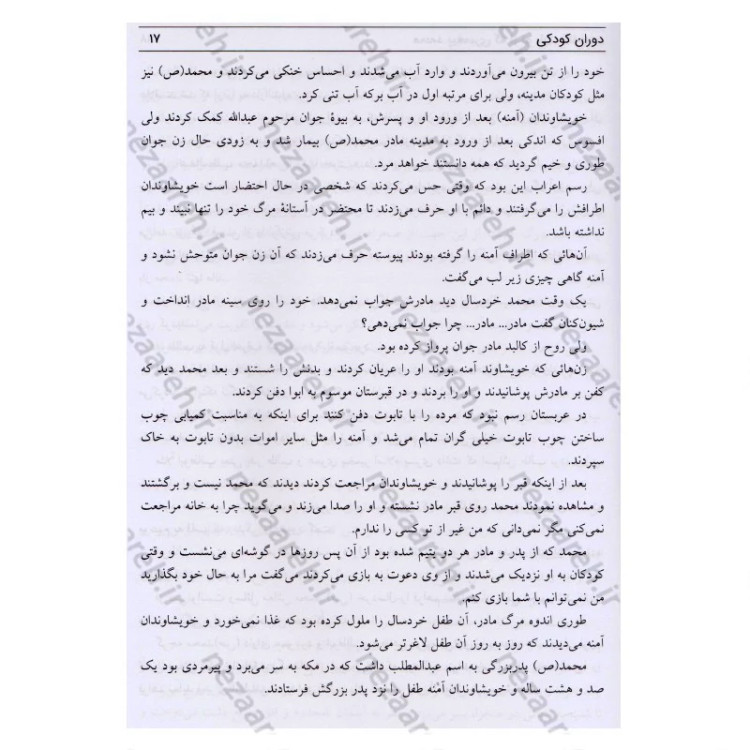 دوران کودکی ۱۷
خود را از تن بیرون می‌آوردند و وارد آب می‌شدند و احساس خنکی می‌کردند و محمد(ص) نیز
مثل کودکان مدینه، ولی برای مرتبه اول در آب برکه آب تنی کرد.
خویشاوندان (آمنه) بعد از ورود او و پسرش، به بیوۀ جوان مرحوم عبدالله کمک کردند ولی
افسوس که اندکی بعد از ورود به مدینه مادر محمد(ص) بیمار شد و به زودی حال زن جوان
طوری و خیم گردید که همه دانستند خواهد مرد.
رسم اعراب این بود که وقتی حس می‌کردند که شخصی در حال احتضار است خویشاوندان
اطرافش را می‌گرفتند و دائم با او حرف می‌زدند تا محتضر در آستانۀ مرگ خود را تنها نبیند و بیم
نداشته باشد.
آن‌هائی که اطراف آمنه را گرفته بودند پیوسته حرف می‌زدند که آن زن جوان متوحش نشود و
آمنه گاهی چیزی زیر لب می‌گفت.
یک وقت محمد خردسال دید مادرش جواب نمی‌دهد. خود را روی سینه مادر انداخت و
شیون‌کنان گفت مادر... مادر... چرا جواب نمی‌دهی؟
ولی روح از کالبد مادر جوان پرواز کرده بود.
زن‌هائی که خویشاوند آمنه بودند او را عریان کردند و بدنش را شستند و بعد محمد دید که
کفن بر مادرش پوشانیدند و او را بردند و در قبرستان موسوم به ابوا دفن کردند.
در عربستان رسم نبود که مرده را با تابوت دفن کنند برای اینکه به مناسبت کمیابی چوب
ساختن چوب تابوت خیلی گران تمام می‌شد و آمنه را مثل سایر اموات بدون تابوت به خاک
سپردند.
بعد از اینکه قبر را پوشانیدند و خویشاوندان مراجعت کردند دیدند که محمد نیست و برگشتند
و مشاهده نمودند محمد روی قبر مادر نشسته و او را صدا می‌زند و می‌گوید چرا به خانه مراجعت
نمی‌کنی مگر نمی‌دانی که من غیر از تو کسی را ندارم.
محمد که از پدر و مادر هر دو یتیم شده بود از آن پس روزها در گوشه‌ای می‌نشست و وقتی
کودکان به او نزدیک می‌شدند و از وی دعوت به بازی می‌کردند می‌گفت مرا به حال خود بگذارید
من نمی‌توانم با شما بازی کنم.
طوری اندوه مرگ مادر، آن طفل خردسال را ملول کرده بود که غذا نمی‌خورد و خویشاوندان
آمنه می‌دیدند که روز به روز آن طفل لاغرتر می‌شود.
محمد(ص) پدربزرگی به اسم عبدالمطلب داشت که در مکه به سر می‌برد و پیرمردی بود یک
صد و هشت ساله و خویشاوندان آمنه طفل را نزد پدر بزرگش فرستادند.
nezaareh.ir